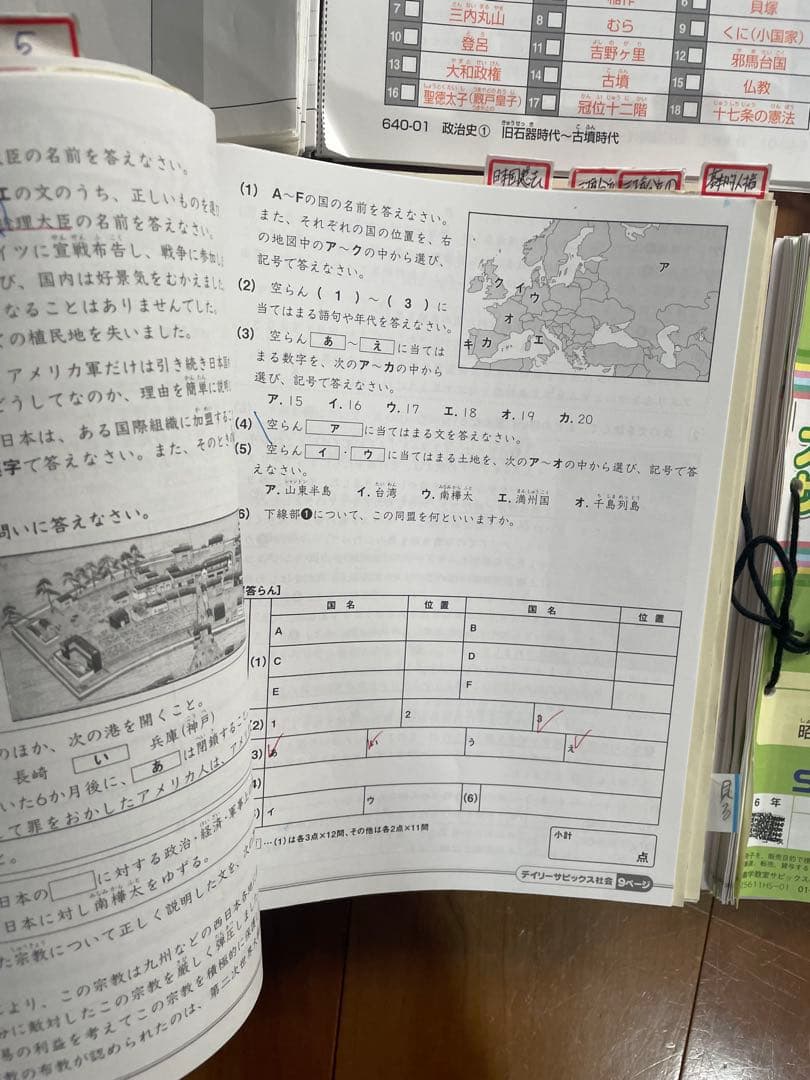 5
7 三内丸山
8 むら
9 くに(小国家)
貝塚
10 登呂
11 吉野ヶ里
12 邪馬台国
13 大和政権
14 古墳
15 仏教
16 聖徳太子(厩戸皇子)
17 冠位十二階
18 十七条の憲法
640-01 政治史① 旧石器時代~古墳時代
臣の名前を答えなさい。
エの文のうち、正しいものを選
理大臣の名前を答えなさい。
イツに宣戦布告し、戦争に参加し
び、国内は好景気をむかえました
なることはありませんでした。
ての植民地を失いました。
アメリカ軍だけは引き続き日本国
どうしてなのか、理由を簡単に説明
日本は、ある国際組織に加盟する
字で答えなさい。また、そのときの
問いに答えなさい。
のほか、次の港を開くこと。
長崎 い 兵庫(神戸)
いた6か月後に、あ は閉鎖すること
して罪をおかしたアメリカ人は、アメリ
日本の に対する政治・経済・軍事上
日本に対し南樺太をゆずる。
た宗教について正しく説明した文を、次
により、この宗教は九州などの西日本各地
分に敵対したこの宗教を厳しく弾圧しまし
易の利益を考えてこの宗教を積極的に保護
の布教が認められたのは、第二次世界大
(1) A~Fの国の名前を答えなさい。
また、それぞれの国の位置を、右
の地図中のア~クの中から選び、
記号で答えなさい。
(2) 空らん(1)~(3)に
当てはまる語句や年代を答えなさい。
(3) 空らん あ ~ え に当ては
まる数字を、次のア~カの中から
選び、記号で答えなさい。
ア.15 イ.16 ウ.17 エ.18 オ.19 カ.20
(4) 空らん ア に当てはまる文を答えなさい。
(5) 空らん イ ・ ウ に当てはまる土地を、次のア~オの中から選び、記号で答
えなさい。
ア.山東半島 イ.台湾 ウ.南樺太 エ.満州国 オ.千島列島
(6) 下線部❶について、この同盟を何といいますか。
ア
ク イ ウ
オ
キ カ エ
[答らん]
国名 位置 国名 位置
(1)
A B
C D
E F
(2) 1 2 3
(3) あ い う え
(4)
イ ウ (6)
…(1)は各3点×12問、その他は各2点×11問
小計
点
デイリーサピックス社会 9ページ
6年
25611HS-01